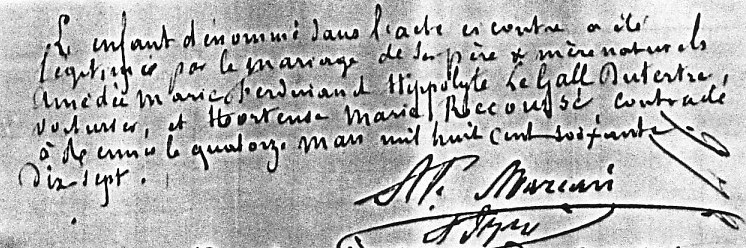 L'enfant dénommé dans l'acte ci contre a été
légitimé par le mariage de ses père & mère naturels
Amédée Marie Ferdinand Hippolyte Le Gall Dutertre,
voiturier, et Hortense Marie Recoursé contracté
à Rennes le quatorze mars mil huit cent soixante
dix-sept.